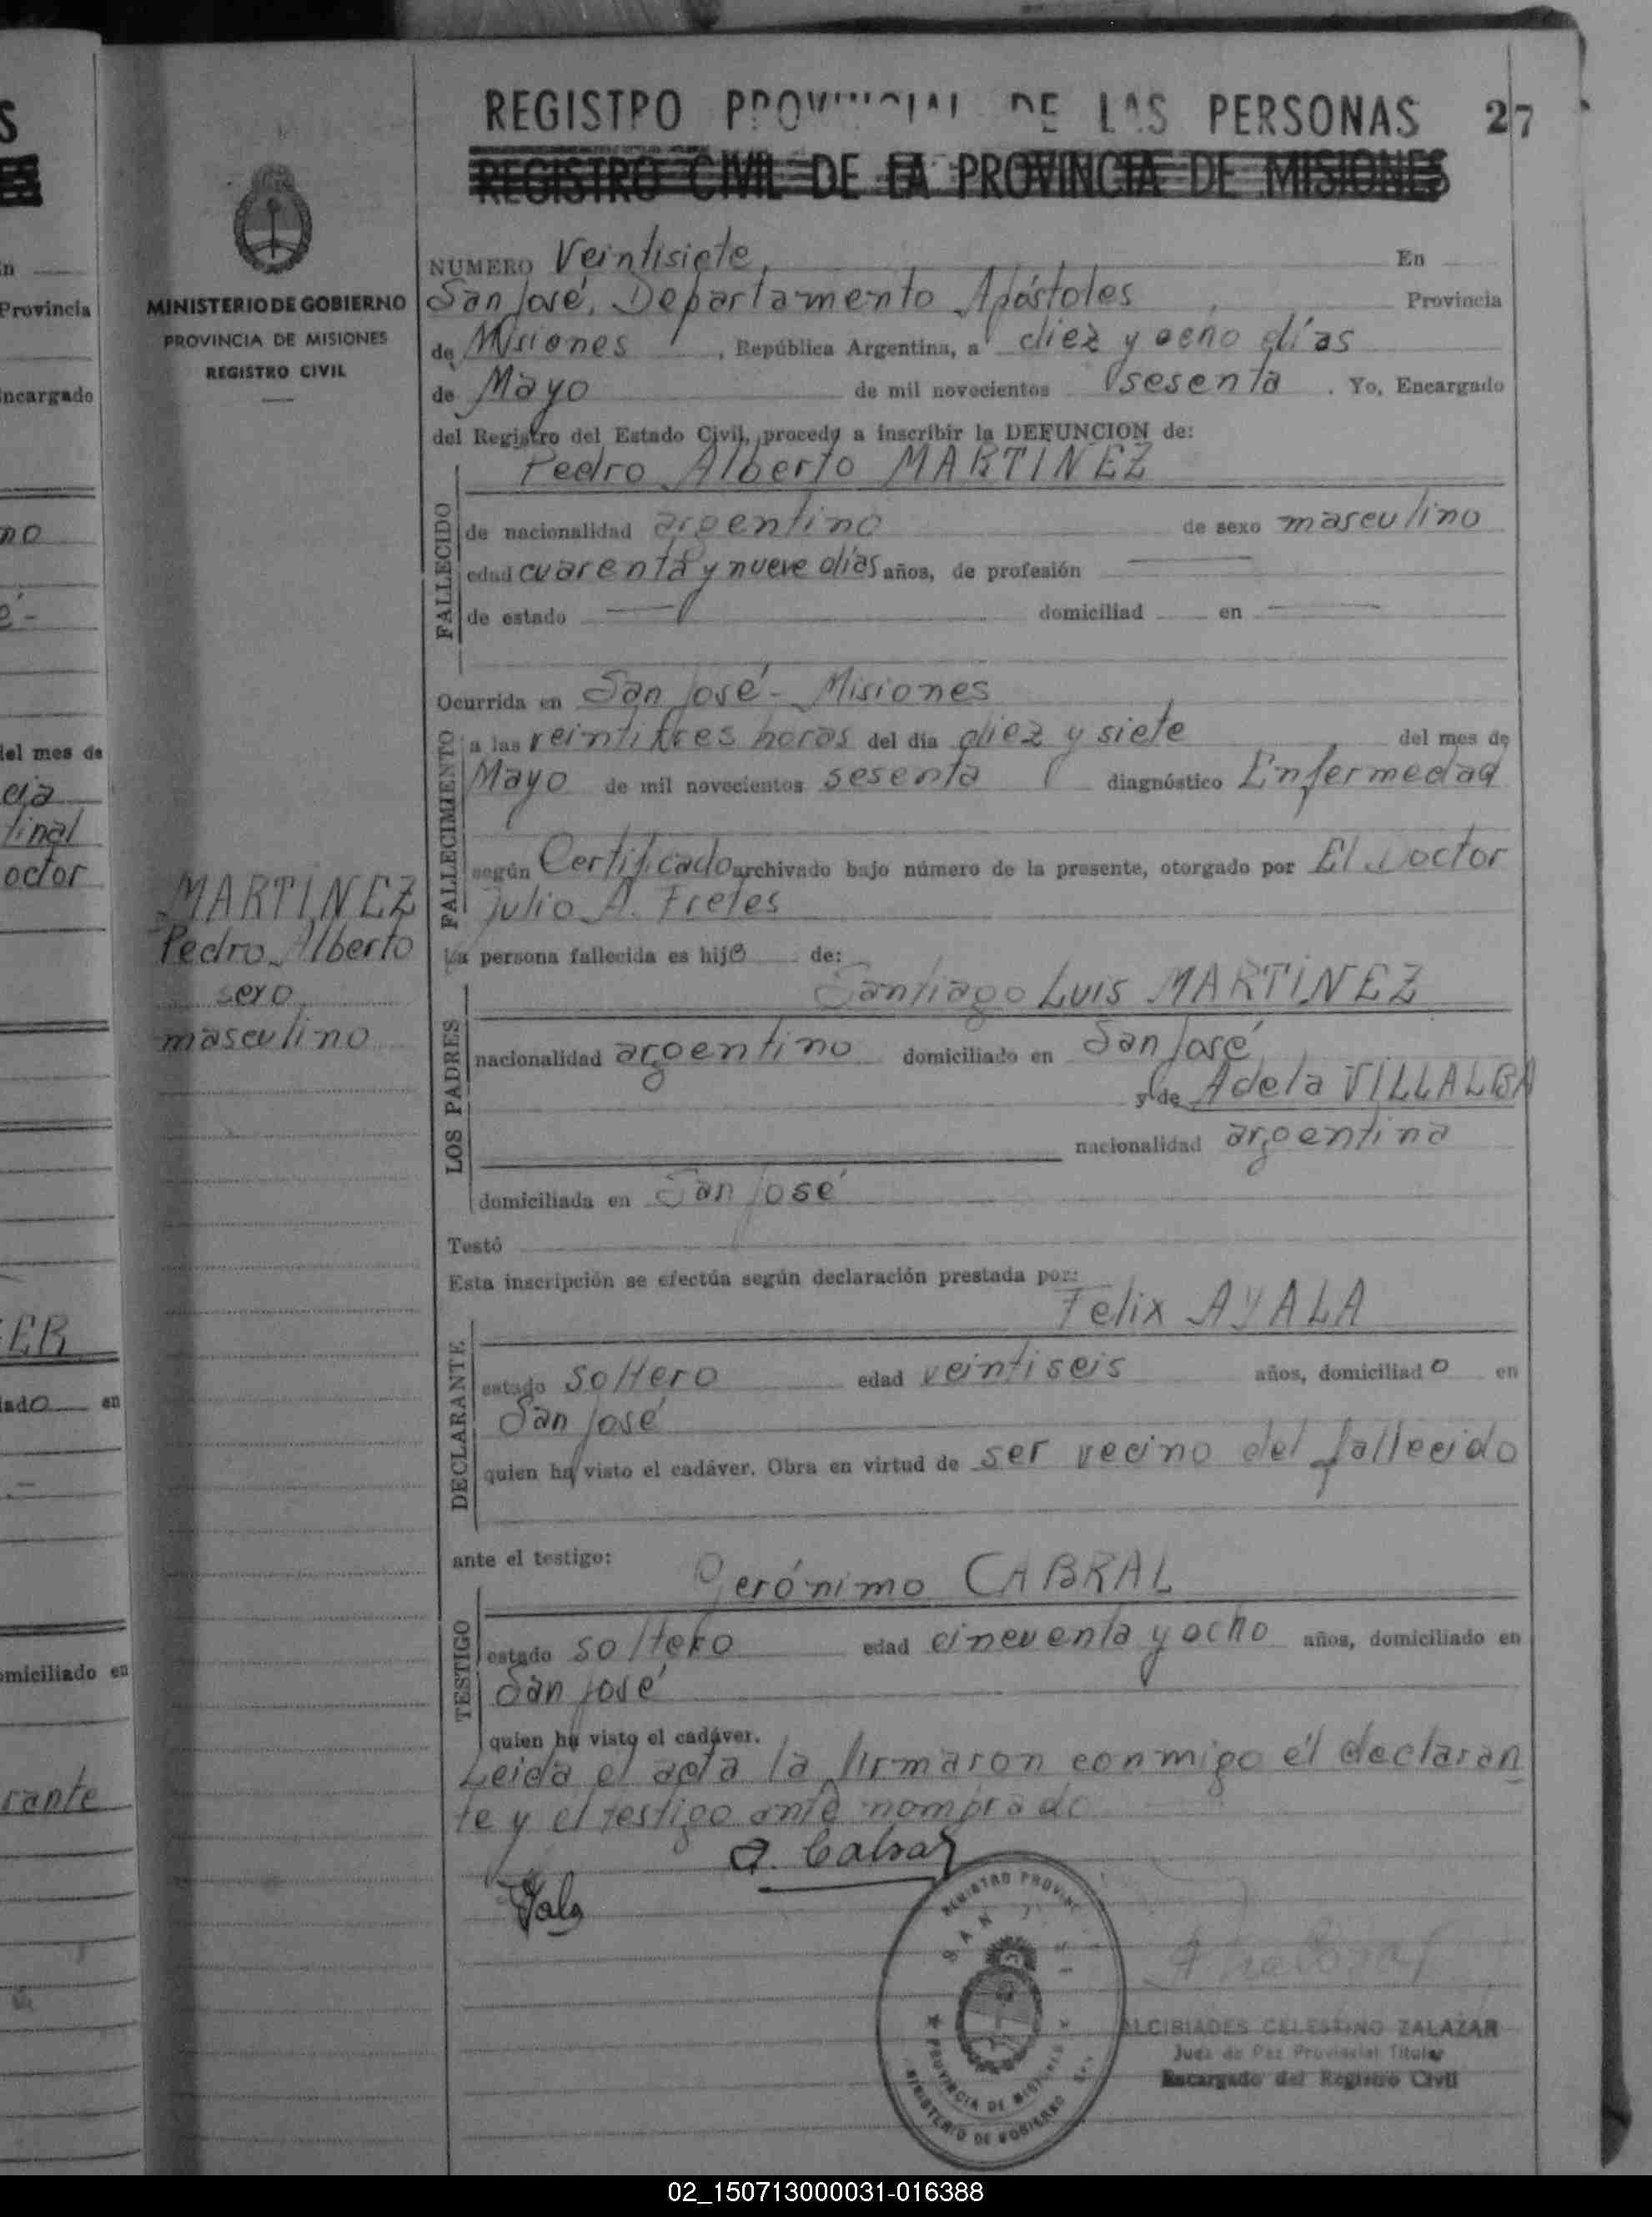 REGISTRO PROVINCIAL DE LAS PERSONAS 27
REGISTRO CIVIL DE LA PROVINCIA DE MISIONES
MINISTERIO DE GOBIERNO
PROVINCIA DE MISIONES
REGISTRO CIVIL
NUMERO Veintisiete, En
San José, Departamento Apóstoles, Provincia
de Misiones, República Argentina, a diez y ocho días
de Mayo de mil novecientos sesenta. Yo, Encargado
del Registro del Estado Civil, procedo a inscribir la DEFUNCION de:
Pedro Alberto MARTINEZ
FALLECIDO
de nacionalidad argentino de sexo masculino
edad cuarenta y nueve días años, de profesión
de estado domiciliad en
Ocurrida en San José - Misiones
FALLECIMIENTO
a las veintitres horas del día diez y siete del mes de
Mayo de mil novecientos sesenta diagnóstico Enfermedad
según Certificado archivado bajo número de la presente, otorgado por El Doctor
Julio A. Fretes
MARTINEZ
Pedro Alberto
sexo
masculino
La persona fallecida es hijo de:
Santiago Luis MARTINEZ
LOS PADRES
nacionalidad argentino domiciliado en San José
y de Adela VILLALBA
nacionalidad argentina
domiciliada en San José
Testó
Esta inscripción se efectúa según declaración prestada por:
Felix AYALA
DECLARANTE
estado soltero edad veintiseis años, domiciliado en
San José
quien ha visto el cadáver. Obra en virtud de ser vecino del fallecido
ante el testigo:
Gerónimo CABRAL
TESTIGO
estado soltero edad cincuenta y ocho años, domiciliado en
San José
quien ha visto el cadáver.
Leida el acta la firmaron conmigo él declaran
te y el testigo ante nombrado
REGISTRO PROVIN
SAN
PROVINCIA DE MISIONES
MINISTERIO DE GOBIERNO
ALCIBIADES CELESTINO ZALAZAR
Juez de Paz Provincial Titular
Encargado del Registro Civil
Provincia
ncargado
no
del mes de
cia
tinal
octor
ER
iado en
omiciliado en
rante
02_150713000031-016388